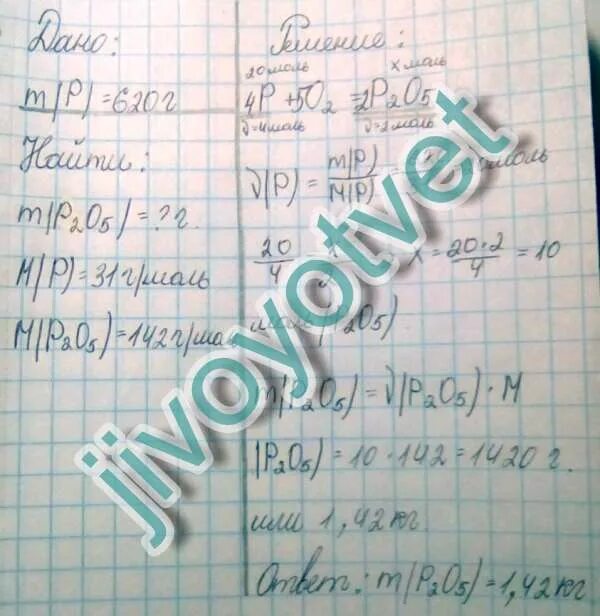 Дано:
m(P)=620г
Найти:
m(P₂O₅)=?г.
M(P)=31г/моль
M(P₂O₅)=142г/мо
Решение:
20моль x моль
4P +5O₂ =2P₂O₅
ν=4моль ν=2моль
ν(P) = m(P)/M(P) = моль
20/4 x = 20·2/4 = 10
моль (P₂O₅)
m(P₂O₅) = ν(P₂O₅)·M
(P₂O₅) = 10·142=1420 г.
или 1,42кг.
Ответ: m(P₂O₅)=1,42кг
jivoyotvet